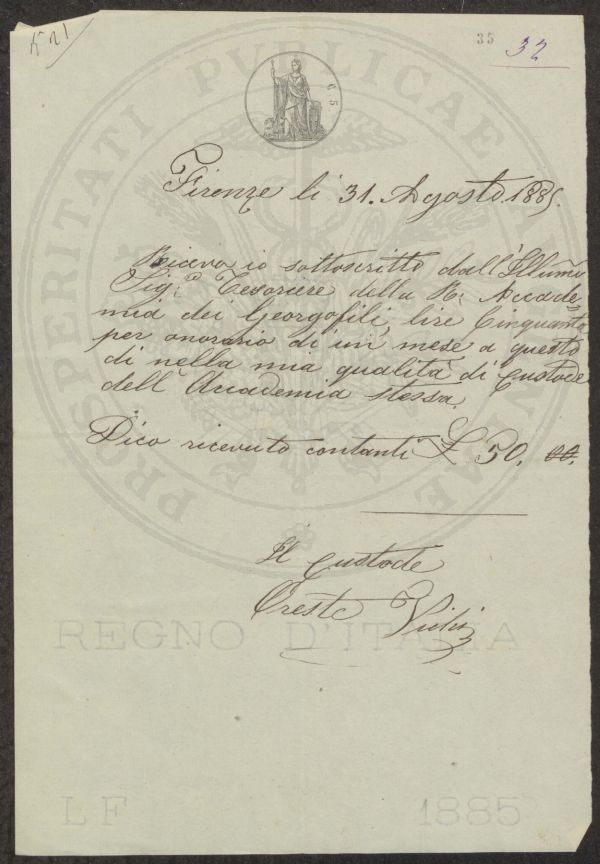 N. 21
35
32
C. 5.
PROSPERITATI PUBLICAE AUGENDAE
Firenze li 31. Agosto 1885.
Ricevo io sottoscritto dall'Illumo
Sig.r Tesoriere della R. Accade=
mia dei Georgofili, lire Cinquanta
per onorario di un mese a questo
di nella mia qualità di Custode
dell'Accademia stessa.
Dico ricevuto contanti £ 50. 00.
Il Custode
Oreste
REGNO D'ITALIA
LF 1885